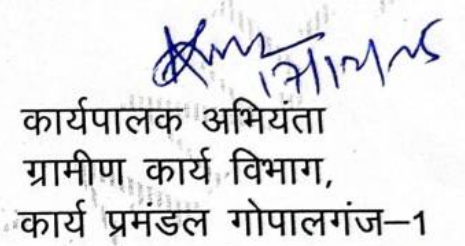 17/12/25
कार्यपालक अभियंता
ग्रामीण कार्य विभाग,
कार्य प्रमंडल गोपालगंज–1